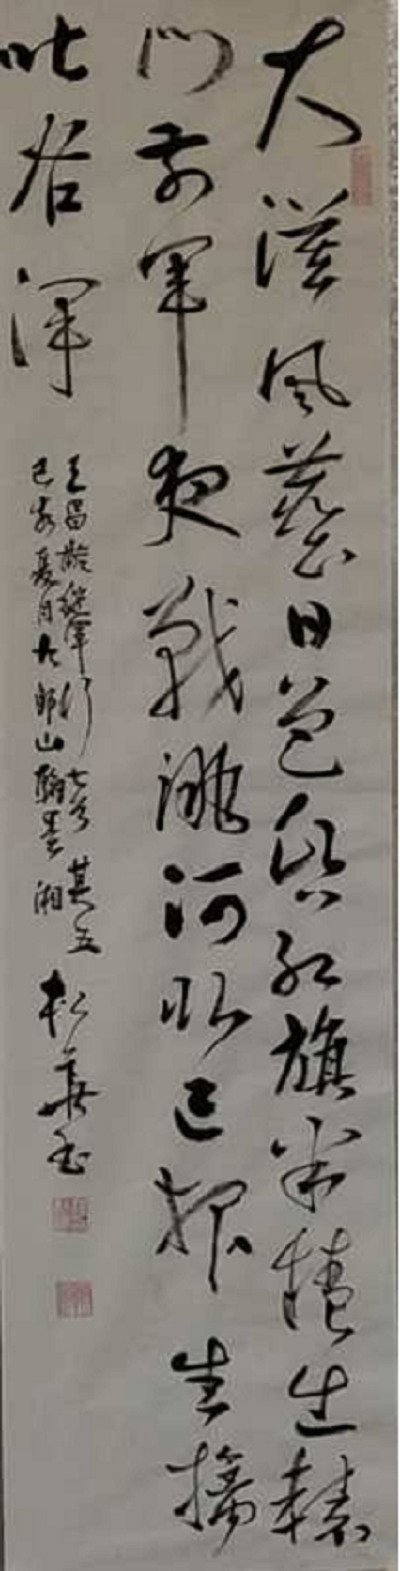 大漠風塵日色昏紅旗半捲出轅
門前軍夜戰洮河北已報生擒
吐谷渾
王昌齡從軍行七首其五
己亥夏月九郎山翰墨湘
松